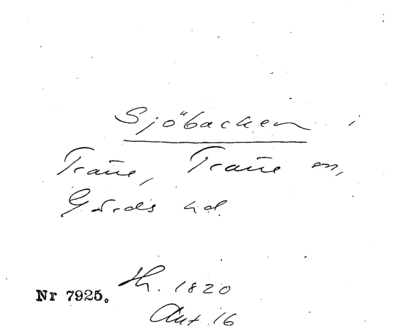 Sjöbacken i
Tråve, Tråve sn,
Gärds hd.
Nr 7925. Th. 1820
Akt 16